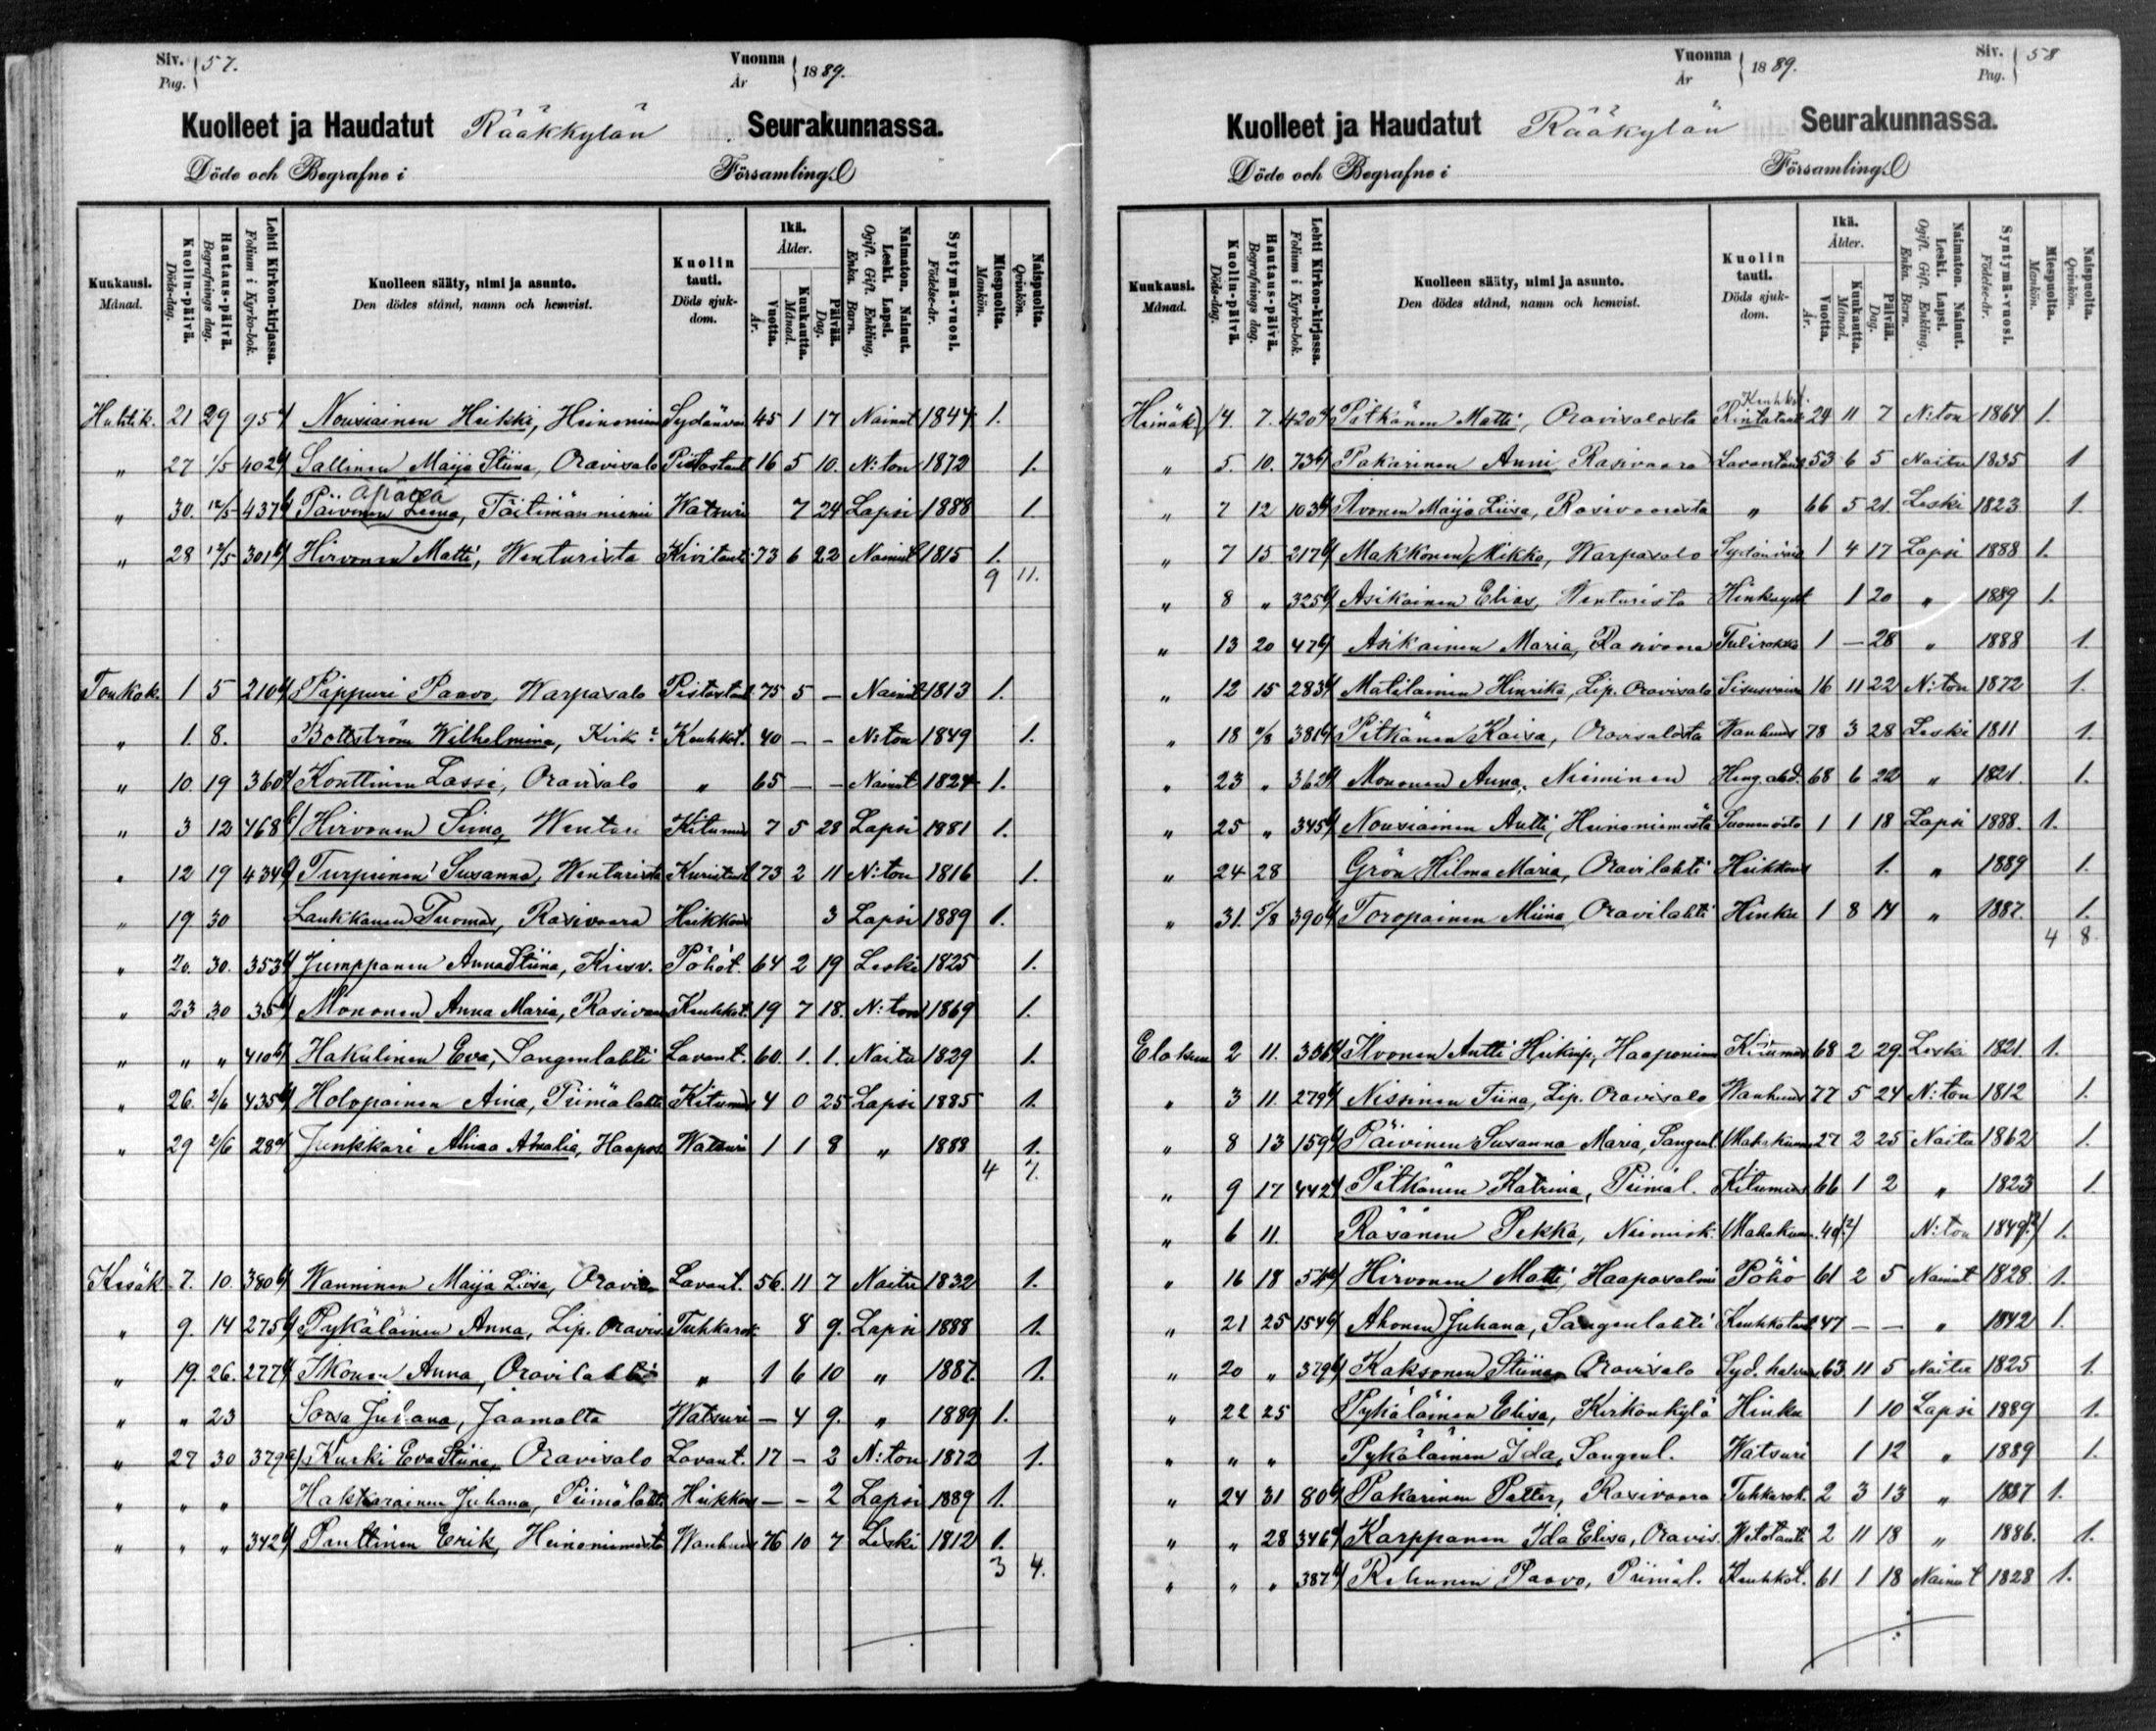 Siv. Pag. 57.
Vuonna År 1889.
Kuolleet ja Haudatut Rääkkylän Seurakunnassa.
Döde och Begrafne i Församling.
Kuukausi. Månad.
Kuolin-päivä. Döds-dag.
Hautaus-päivä. Begrafnings dag.
Lehti Kirkon-kirjassa. Folium i Kyrko-bok.
Kuolleen sääty, nimi ja asunto. Den dödes stånd, namn och hemvist.
Kuolin tauti. Döds sjukdom.
Ikä. Ålder. Vuotta. År. Kuukautta. Månad. Päivää. Dag.
Naimaton. Nainut. Leski. Lapsi. Ogift. Gift. Enkling. Enka. Barn.
Syntymä-vuosi. Födelse-år.
Miespuolta. Mankön.
Naispuolta. Qvinkön.
Huhtik. 21 29 95 Nousiainen Heikki, 45 1 17 Nainut 1844 1.
„ 27 1/5 402 Sallinen Maija Stiina, Oravisalo Pistostaut 16 5 10. N:ton 1872 1.
„ 30. 12/5 437 Päivinen Leena, Täitimänniemi Watsuri 7 24 Lapsi 1888 1.
„ 28 12/5 301 Hirvonen Matti, Wenturista Kivitauti 73 6 22 Nainut 1815 1.
9 11.
Toukok. 1 5 210 Päppuri Paavo, Warpasalo Pistostaut 75 5 — Nainut 1813 1.
„ 1. 8. Bottström Wilhelmina, Kirk. Keuhkot. 40 — — N:ton 1849 1.
„ 10. 19 360 Konttinen Lassi, Oravisalo „ 65 — — Nainut 1824 1.
„ 3 12 468 Hirvonen Simo, Wentu Kitumus 7 5 28 Lapsi 1881 1.
„ 12 19 434 Turpeinen Susanna, Wenturista Kuristaut 73 2 11 N:ton 1816 1.
„ 19. 30 Laukkanen Tuomas, Rasivaara Heikkous 3 Lapsi 1889 1.
„ 20. 30. 353 Jumppanen Anna Stiina, Pöhöt. 64 2 19 Leski 1825 1.
„ 23 30 35 Mononen Anna Maria, Rasivaara Keuhkot. 19 7 18. N:ton 1869 1.
„ „ „ 410 Hakulinen Eva, Sangenlahti Lavant. 60. 1. 1. Naitu 1829 1.
„ 26. 2/6 435 Holopainen Aina, Piimälahti Kitumus 4 0 25 Lapsi 1885 1.
„ 29 2/6 28 Junkkari Amalia, Haapos Watsuri 1 1 8 „ 1888 1.
4 7.
Kesäk. 7. 10. 380 Wanninen Maija Liisa, Oravis Lavant. 56. 11 7 Naitu 1832 1.
„ 9. 14 275 Pykäläinen Anna, Lip. Oravis Tuhkarok 8 9. Lapsi 1888 1.
„ 19. 26. 277 Ikonen Anna, Oravilahti „ 1 6 10 „ 1887. 1.
„ „ 23 Sorsa Juhana, Jaamalta Watsuri — 4 9. „ 1889 1.
„ 27 30 379 Kurki Eva Stiina, Oravisalo Lavant. 17 — 2 N:ton 1872 1.
„ „ „ Hakkarainen Juhana, Piimälahti Heikkous — — 2 Lapsi 1889 1.
„ „ „ 342 Panttinen Erik, Heinoniemestä Wanhuus 76 10 7 Leski 1812 1.
3 4.
Vuonna År 1889.
Siv. Pag. 58
Kuolleet ja Haudatut Rääkylän Seurakunnassa.
Döde och Begrafne i Församling.
Kuukausi. Månad.
Kuolin-päivä. Döds-dag.
Hautaus-päivä. Begrafnings dag.
Lehti Kirkon-kirjassa. Folium i Kyrko-bok.
Kuolleen sääty, nimi ja asunto. Den dödes stånd, namn och hemvist.
Kuolin tauti. Döds sjukdom.
Ikä. Ålder. Vuotta. År. Kuukautta. Månad. Päivää. Dag.
Naimaton. Nainut. Leski. Lapsi. Ogift. Gift. Enkling. Enka. Barn.
Syntymä-vuosi. Födelse-år.
Miespuolta. Mankön.
Naispuolta. Qvinkön.
Heinäk. 4. 7. 420 Pitkänen Matti, Oravisalosta Keuhkot. Rintataut 24 11 7 N:ton 1864 1.
„ 5. 10. 73 Pakarinen Anni, Rasivaara Lavantaut 53 6 5 Naitu 1835 1
„ 7 12 103 Ilvonen Maija Liisa, Rasivaarasta „ 66 5 21. Leski 1823 1.
„ 7 15 217 Makkonen Mikko, Warpasalo 1 4 17 Lapsi 1888 1.
„ 8 „ 325 Asikainen Elias, Wenturista Hinkuyst 1 20 „ 1889 1.
„ 13 20 47 Asikainen Maria, Rasivaara Tulirokko 1 — 28 „ 1888 1.
„ 12 15 283 Matilainen Hinrika, Lip. Oravisalo 16 11 22 N:ton 1872 1.
„ 18 2/8 381 Pitkänen Kaisa, Oravisalosta Wanhuus 78 3 28 Leski 1811 1.
„ 23 „ 362 Mononen Anna, Nieminen Heng. ahd. 68 6 22 „ 1821. 1.
„ 25 „ 345 Nousiainen Antti, Heinoniemestä 1 1 18 Lapsi 1888. 1.
„ 24 28 Grön Hilma Maria, Oravilahti Heikkous 1. „ 1889 1.
„ 31. 5/8 390 Toropainen Miina, Oravilahti Hinku 1 8 14 „ 1887. 1.
4 8.
Elokuu 2 11. 336 Ilvonen Antti Heikinp, Haaponiemi Kitumus 68 2 29. Leski 1821. 1.
„ 3 11. 279 Nissinen Tiina, Lip. Oravisalo Wanhuus 77 5 24 N:ton 1812 1.
„ 8 13 159 Päivinen Susanna Maria, Sangenl. 27 2 25 Naitu 1862 1.
„ 9 17 442 Pitkänen Katrina, Piimäl. Kitumus 66 1 2 „ 1823 1.
„ 6 11. Räsänen Pekka, Niemisk. 40(?) N:ton 1849(?) 1.
„ 16 18 54 Hirvonen Matti, Haapasalmi Pöhö 61 2 5 Nainut 1828. 1.
„ 21 25 154 Ahonen Juhana, Sangenlahti Keuhkotaut 47 — — „ 1842 1.
„ 20 „ 379 Kaksonen Stiina, Oravisalo Syd. halvaus 63. 11 5 Naitu 1825 1.
„ 22 25 Pykäläinen Elisa, Kirkonkylä Hinku 1 10 Lapsi 1889 1.
„ „ „ Pykäläinen Ida, Sangenl. Watsuri 1 12 „ 1889 1.
„ 24 31 80 Pakarinen Petter, Rasivaara Tuhkarok. 2 3 13 „ 1887 1.
„ „ 28 346 Karppanen Ida Elisa, Oravis. Wetotauti 2 11 18 „ 1886. 1.
„ „ „ 387 Paavo, Piimäl. Keuhkot. 61 1 18 Nainut 1828 1.